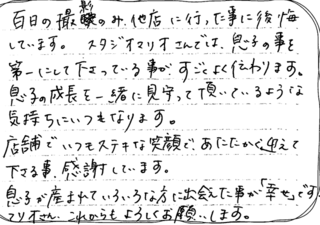 百日の撮影のみ、他店に行った事に後悔
しています。スタジオマリオさんでは、息子の事を
第一にして下さっている事がすごくよく伝わります。
息子の成長を一緒に見守って頂いているような
気持ちにいつもなります。
店舗でいつもステキな笑顔で、あたたかく迎えて
下さる事、感謝しています。
息子が産まれていろいろな方に出会えた事が「幸せ」です。
マリオさん、これからもよろしくお願いします。